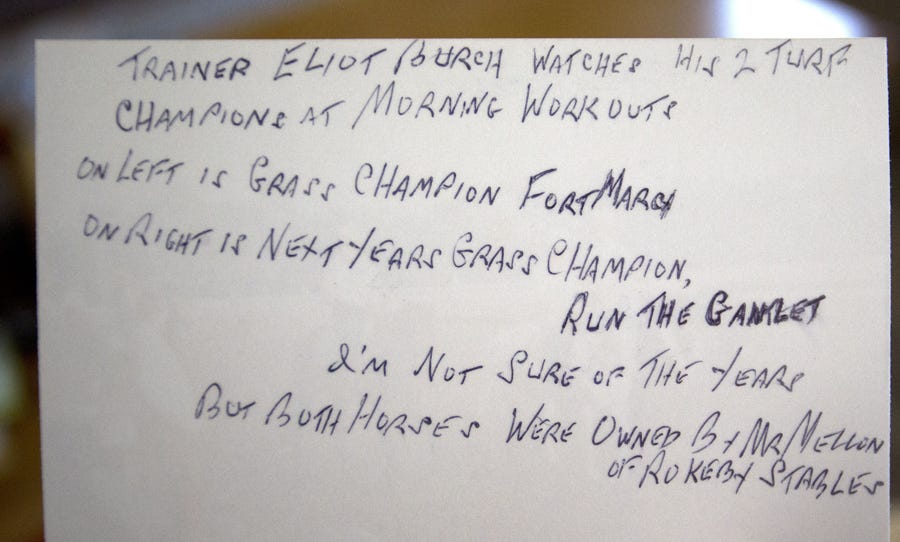 TRAINER ELIOT BURCH WATCHES HIS 2 TURF
CHAMPIONS AT MORNING WORKOUTS
ON LEFT IS GRASS CHAMPION FORT MARCH
ON RIGHT IS NEXT YEARS GRASS CHAMPION,
RUN THE GANTLET
I'M NOT SURE OF THE YEARS
BUT BOTH HORSES WERE OWNED BY MR MELLON
OF ROKEBY STABLES